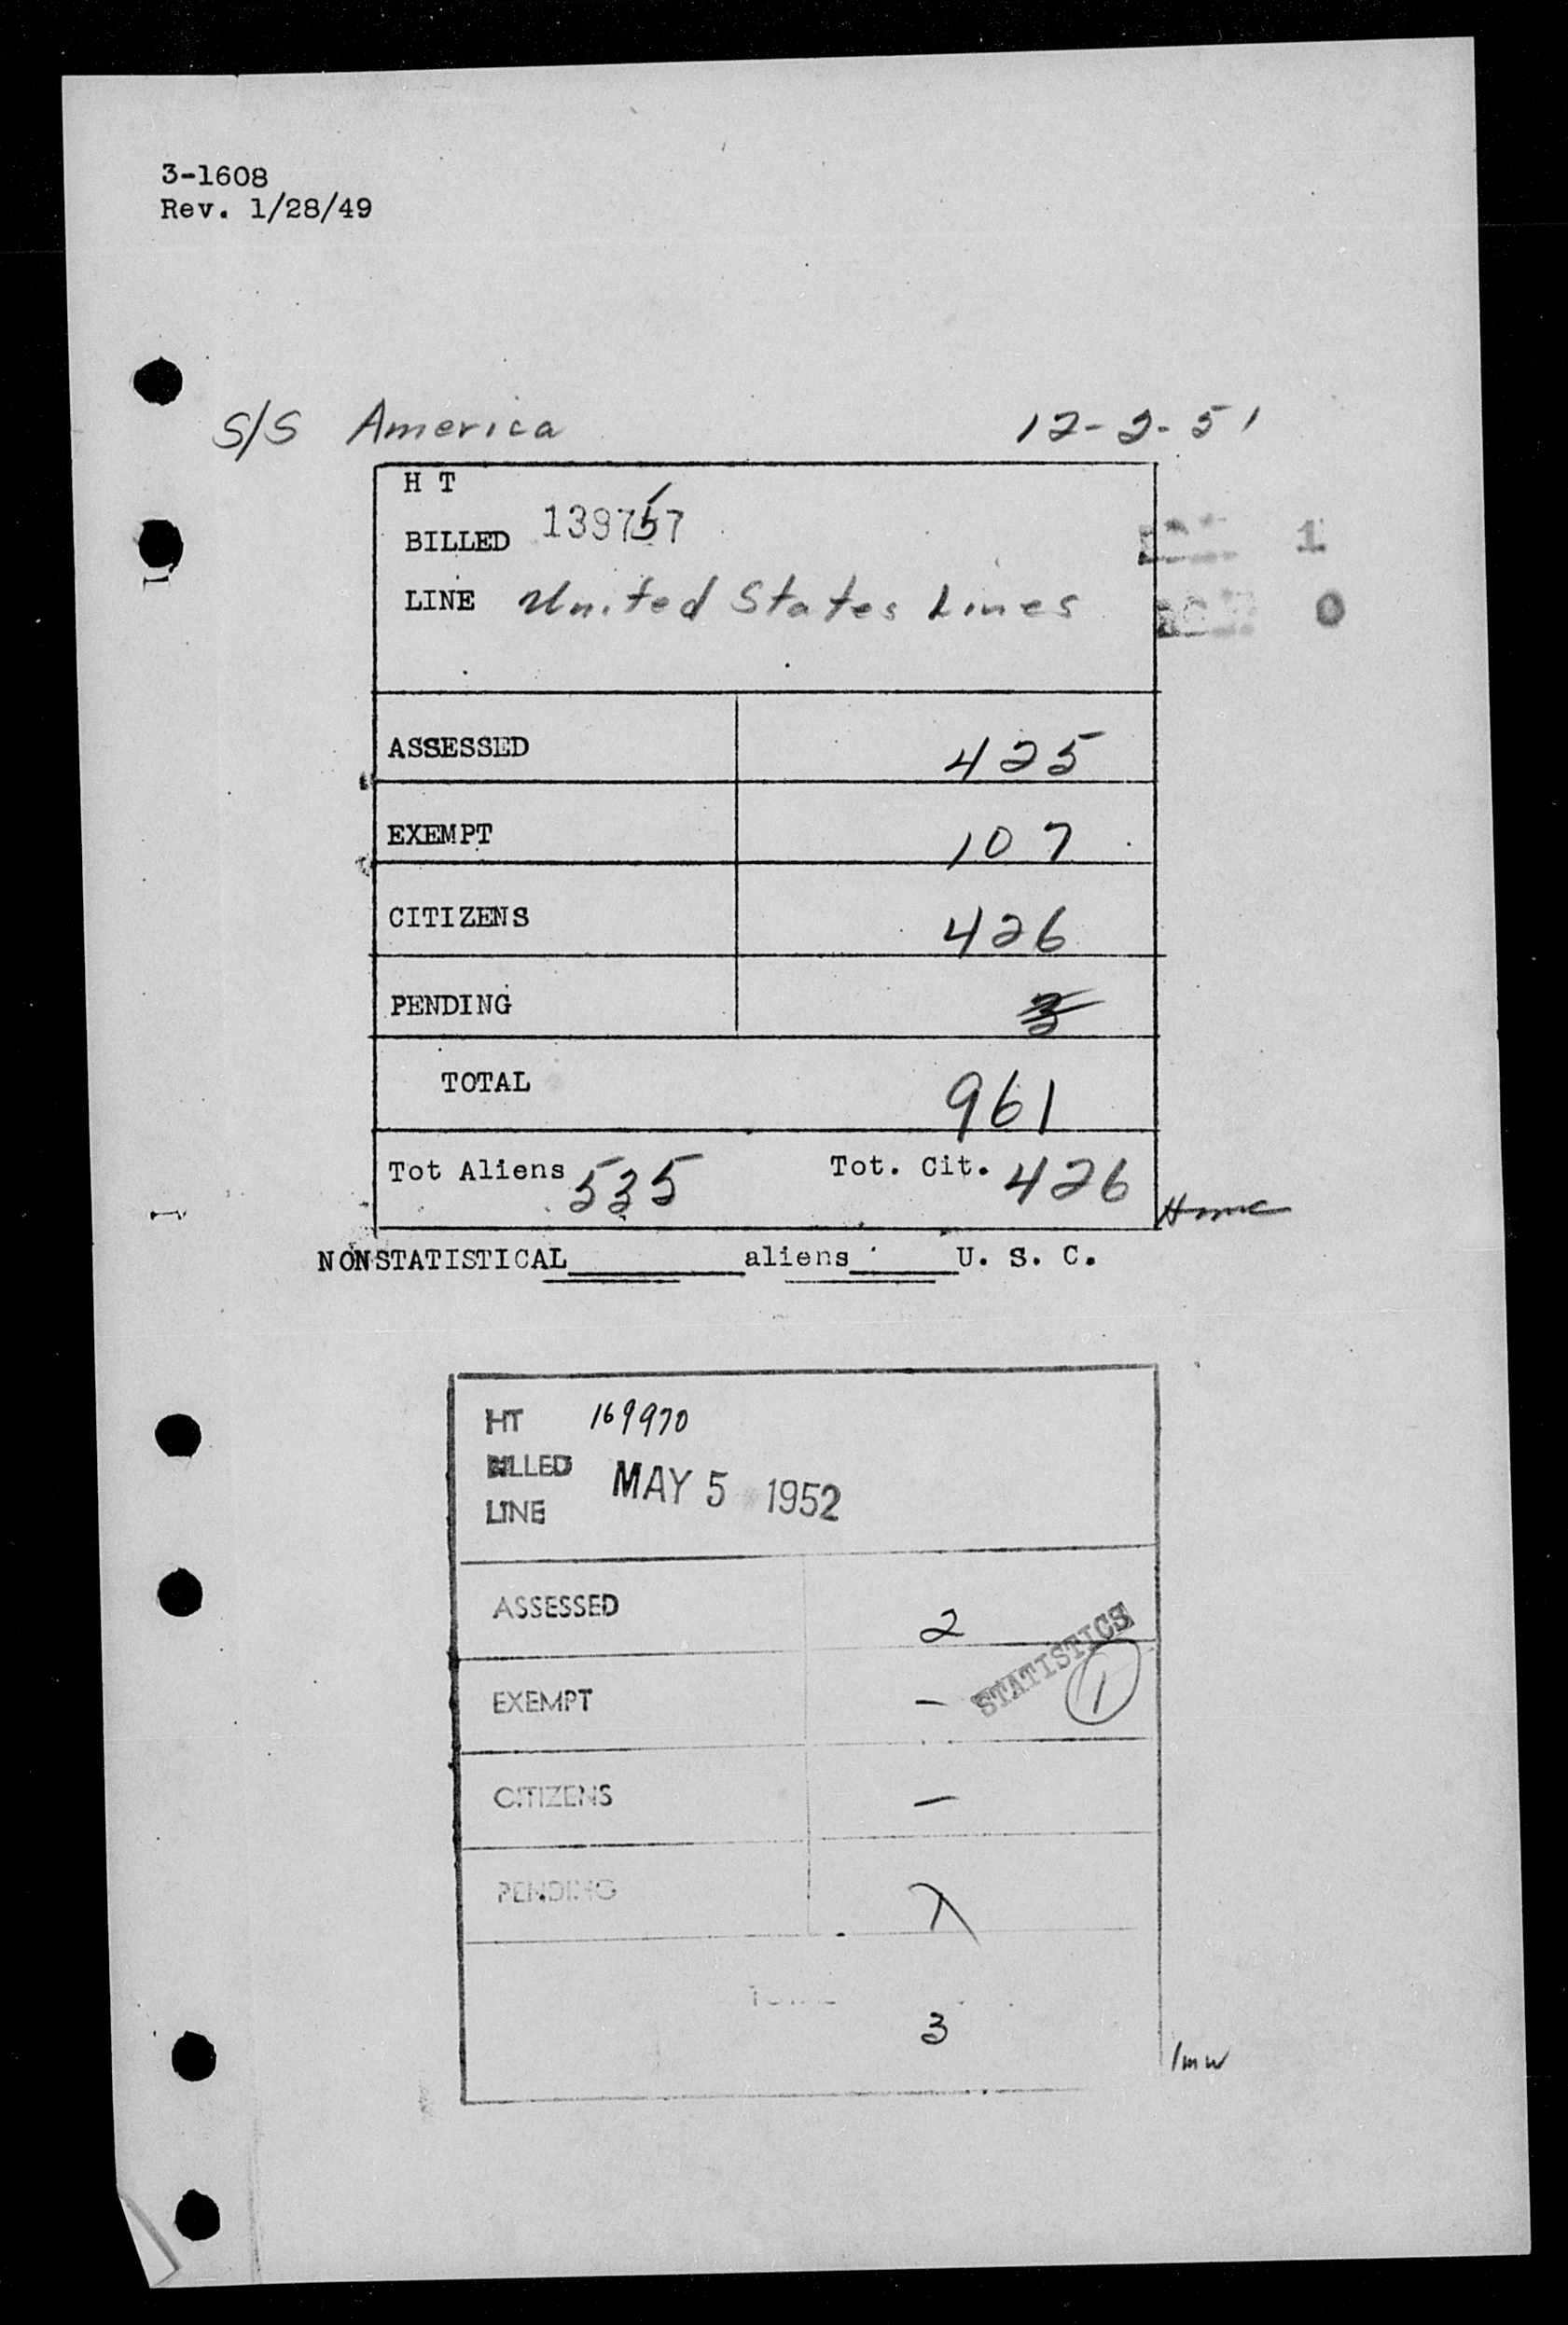 3-1608
Rev. 1/28/49
S/S America 12-2-51
H T
BILLED 139757
LINE United States Lines
1
0
ASSESSED 425
EXEMPT 107
CITIZENS 426
PENDING 3
TOTAL 961
Tot Aliens 535 Tot. Cit. 426
NONSTATISTICAL aliens U. S. C.
HT 169970
BILLED MAY 5 1952
LINE
ASSESSED 2
STATISTICS
1
EXEMPT -
CITIZENS -
PENDING
3